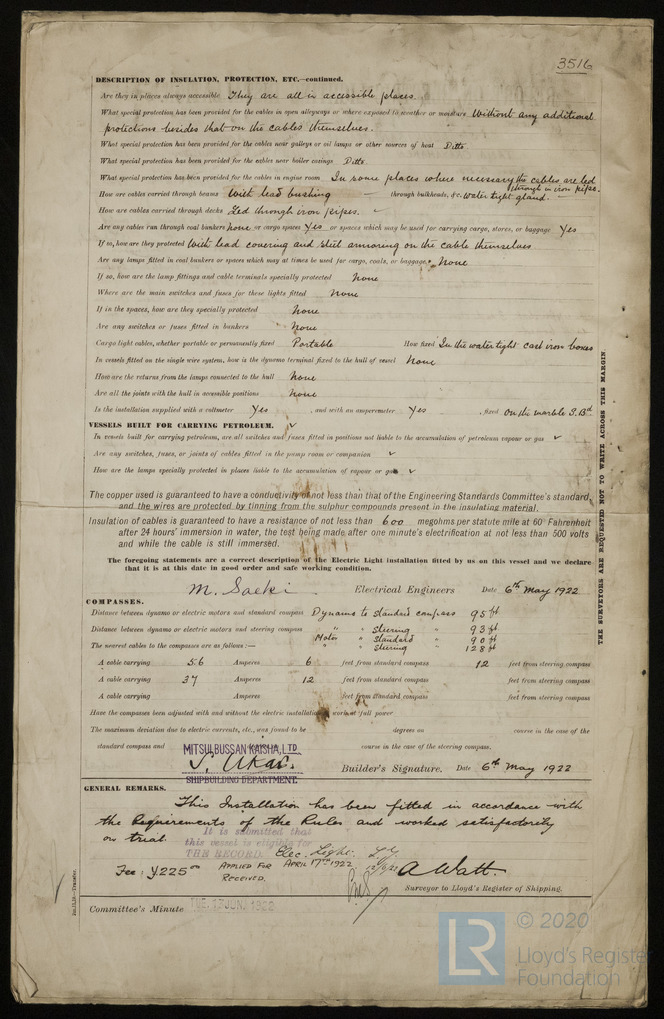 3516
DESCRIPTION OF INSULATION, PROTECTION, ETC.—continued.
Are they in places always accessible They are all in accessible places.
What special protection has been provided for the cables in open alleyways or where exposed to weather or moisture Without any additional
protections besides that on the cables themselves.
What special protection has been provided for the cables near galleys or oil lamps or other sources of heat Ditto
What special protection has been provided for the cables near boiler casings Ditto.
What special protection has been provided for the cables in engine room In some places where necessary the cables are led
through in iron pipe.
How are cables carried through beams With lead bushing through bulkheads, &c. water tight gland.
How are cables carried through decks Led through iron pipes.
Are any cables run through coal bunkers none or cargo spaces Yes or spaces which may be used for carrying cargo, stores, or baggage Yes
If so, how are they protected With lead covering and steel armoring on the cable themselves
Are any lamps fitted in coal bunkers or spaces which may at times be used for cargo, coals, or baggage None
If so, how are the lamp fittings and cable terminals specially protected None
Where are the main switches and fuses for these lights fitted None
If in the spaces, how are they specially protected None
Are any switches or fuses fitted in bunkers None
Cargo light cables, whether portable or permanently fixed Portable How fixed In the water tight cast iron boxes
In vessels fitted on the single wire system, how is the dynamo terminal fixed to the hull of vessel None
How are the returns from the lamps connected to the hull None
Are all the joints with the hull in accessible positions None
Is the installation supplied with a voltmeter Yes , and with an amperemeter Yes , fixed On the marble S.Bd.
VESSELS BUILT FOR CARRYING PETROLEUM.
In vessels built for carrying petroleum, are all switches and fuses fitted in positions not liable to the accumulation of petroleum vapour or gas
Are any switches, fuses, or joints of cables fitted in the pump room or companion
How are the lamps specially protected in places liable to the accumulation of vapour or gas
The copper used is guaranteed to have a conductivity of not less than that of the Engineering Standards Committee's standard,
and the wires are protected by tinning from the sulphur compounds present in the insulating material.
Insulation of cables is guaranteed to have a resistance of not less than 600 megohms per statute mile at 60° Fahrenheit
after 24 hours' immersion in water, the test being made after one minute's electrification at not less than 500 volts
and while the cable is still immersed.
The foregoing statements are a correct description of the Electric Light installation fitted by us on this vessel and we declare
that it is at this date in good order and safe working condition.
M. Saeki Electrical Engineers Date 6th May 1922
COMPASSES.
Distance between dynamo or electric motors and standard compass Dynamo to standard compass 95 ft
Distance between dynamo or electric motors and steering compass " " steering " 93 ft
Motor " standard " 90 ft
The nearest cables to the compasses are as follows:— " " steering " 128 ft
A cable carrying 56 Amperes 6 feet from standard compass 12 feet from steering compass
A cable carrying 37 Amperes 12 feet from standard compass feet from steering compass
A cable carrying Amperes feet from standard compass feet from steering compass
Have the compasses been adjusted with and without the electric installation at work at full power
The maximum deviation due to electric currents, etc., was found to be degrees on course in the case of the
standard compass and course in the case of the steering compass.
MITSUI BUSSAN KAISHA, LTD
SHIPBUILDING DEPARTMENT.
Builder's Signature. Date 6th May 1922
GENERAL REMARKS.
This Installation has been fitted in accordance with
the Requirements of the Rules and worked satisfactorily
on trial.
It is submitted that
this vessel is eligible for
THE RECORD. Elec. Light.
Fee: Y225 00 APPLIED FOR APRIL 17th 1922
RECEIVED.
A Watt.
Surveyor to Lloyd's Register of Shipping.
Committee's Minute TUE. 13 JUN. 1922
THE SURVEYORS ARE REQUESTED NOT TO WRITE ACROSS THIS MARGIN.
LR
© 2020
Lloyd's Register
Foundation